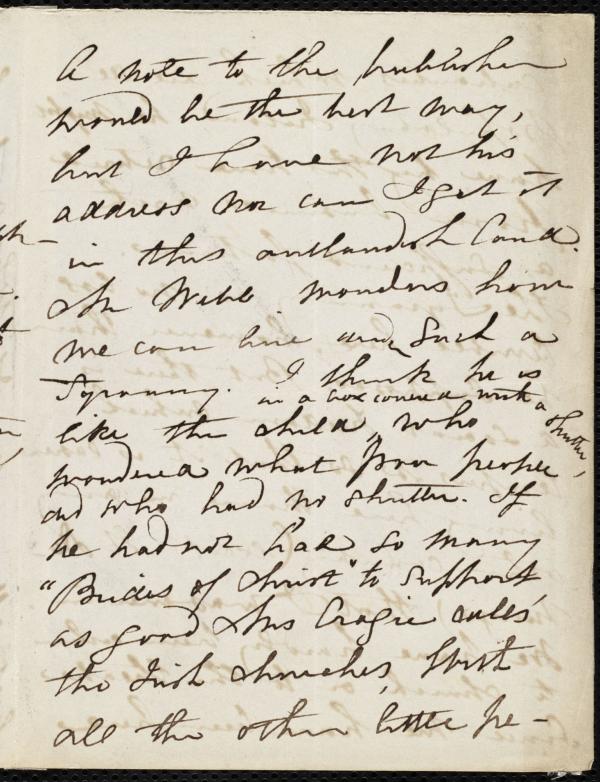 A note to the publisher
would be the best way,
but I have not his
address nor can I get it
in this outlandish land.
Mr Webb wonders how
we can live under such a
Tyranny. I think he is
like the child, in a box covered with a shutter, who
wondered what poor people
did who had no shutter. If
he had not had so many
"Brides of Christ" to support,
as good Mrs Cragie calls
the Irish churches, with
all the other little pe-